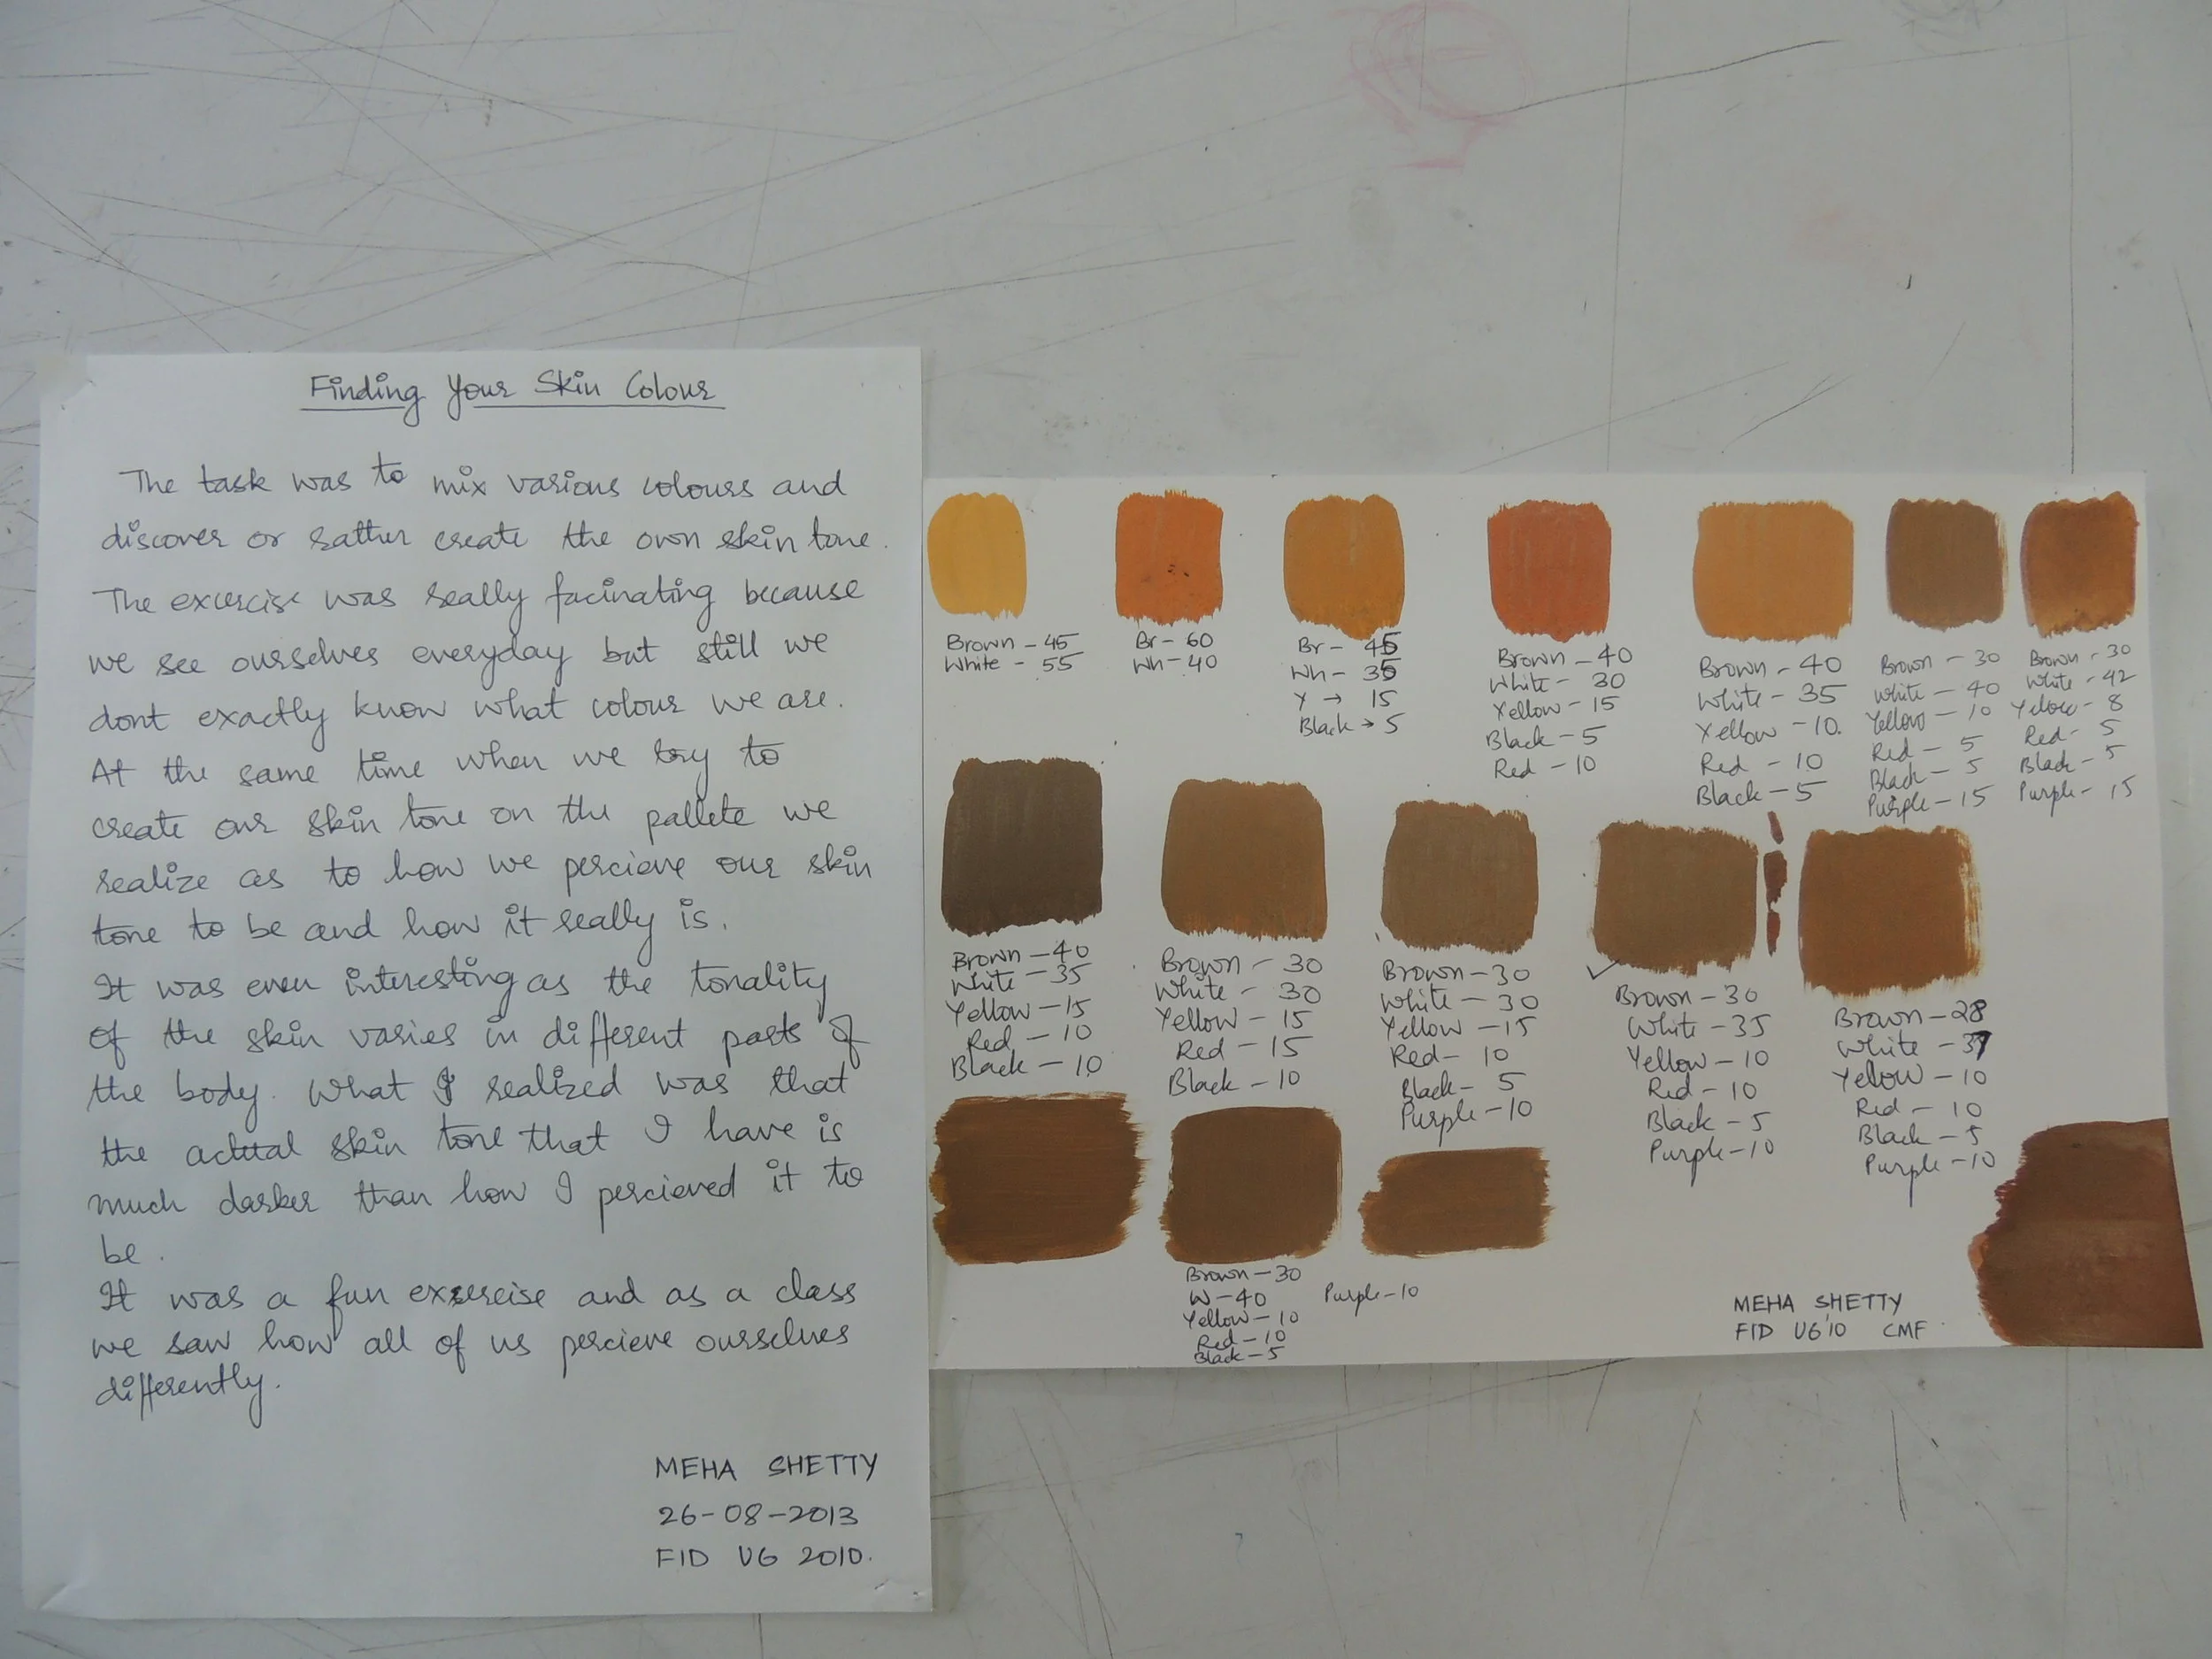 Finding Your Skin Colour
The task was to mix various colours and
discover or rather create the own skin tone.
The excercise was really facinating because
we see ourselves everyday but still we
dont exactly know what colour we are.
At the same time when we try to
create our skin tone on the pallete we
realize as to how we percieve our skin
tone to be and how it really is.
It was even interesting as the tonality
of the skin varies in different parts of
the body. What I realized was that
the actual skin tone that I have is
much darker than how I percieved it to
be.
It was a fun exercise and as a class
we saw how all of us percieve ourselves
differently.
MEHA SHETTY
26-08-2013
FID UG 2010.
Brown - 45
White - 55
Br - 60
Wh - 40
Br - 45
Wh - 35
Y → 15
Black → 5
Brown - 40
White - 30
Yellow - 15
Black - 5
Red - 10
Brown - 40
White - 35
Yellow - 10.
Red - 10
Black - 5
Brown - 30
White - 40
Yellow - 10
Red - 5
Black - 5
Purple - 15
Brown - 30
White - 42
Yellow - 8
Red - 5
Black - 5
Purple - 15
Brown - 40
White - 35
Yellow - 15
Red - 10
Black - 10
Brown - 30
White - 30
Yellow - 15
Red - 15
Black - 10
Brown - 30
White - 30
Yellow - 15
Red - 10
Black - 5
Purple - 10
Brown - 30
White - 35
Yellow - 10
Red - 10
Black - 5
Purple - 10
Brown - 28
White - 37
Yellow - 10
Red - 10
Black - 5
Purple - 10
Brown - 30
W - 40
Yellow - 10
Red - 10
Black - 5
Purple - 10
MEHA SHETTY
FID UG'10 CMF